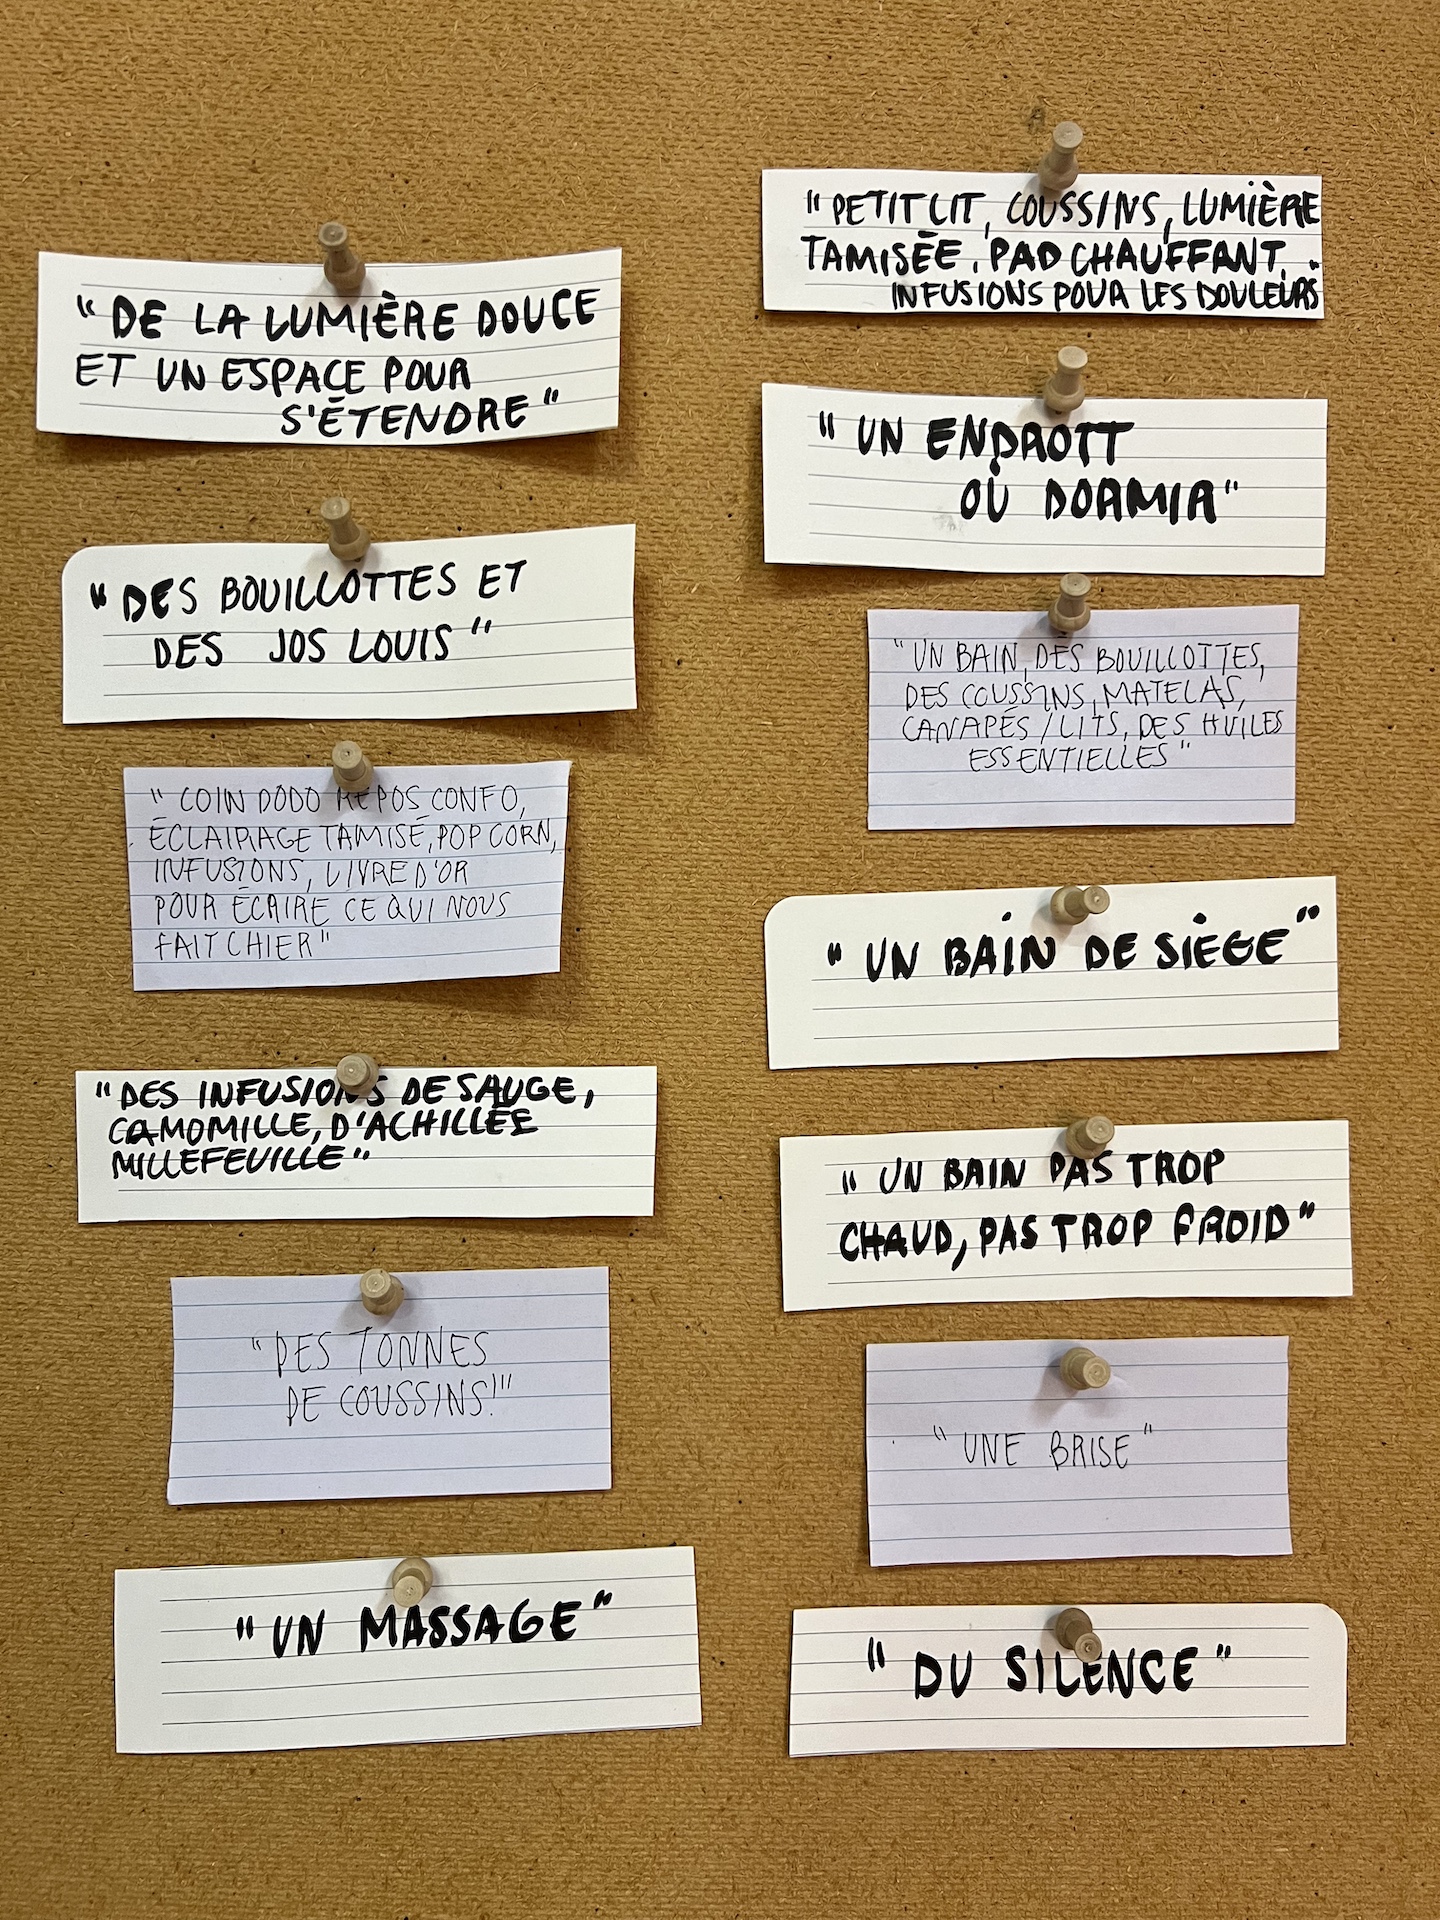 "DE LA LUMIÈRE DOUCE
ET UN ESPACE POUR
S'ÉTENDRE"
"DES BOUILLOTTES ET
DES JOS LOUIS"
"COIN DODO REPOS CONFO,
ÉCLAIRAGE TAMISÉ, POP CORN,
INFUSIONS, LIVRE D'OR
POUR ÉCRIRE CE QUI NOUS
FAIT CHIER"
"DES INFUSIONS DE SAUGE,
CAMOMILLE, D'ACHILLÉE
MILLEFEUILLE"
"DES TONNES
DE COUSSINS!"
"UN MASSAGE"
"PETIT LIT, COUSSINS, LUMIÈRE
TAMISÉE, PAD CHAUFFANT,
INFUSIONS POUR LES DOULEURS"
"UN ENDROIT
OÙ DORMIR"
"UN BAIN, DES BOUILLOTTES,
DES COUSSINS, MATELAS,
CANAPÉS / LITS, DES HUILES
ESSENTIELLES"
"UN BAIN DE SIÈGE"
"UN BAIN PAS TROP
CHAUD, PAS TROP FROID"
"UNE BRISE"
"DU SILENCE"